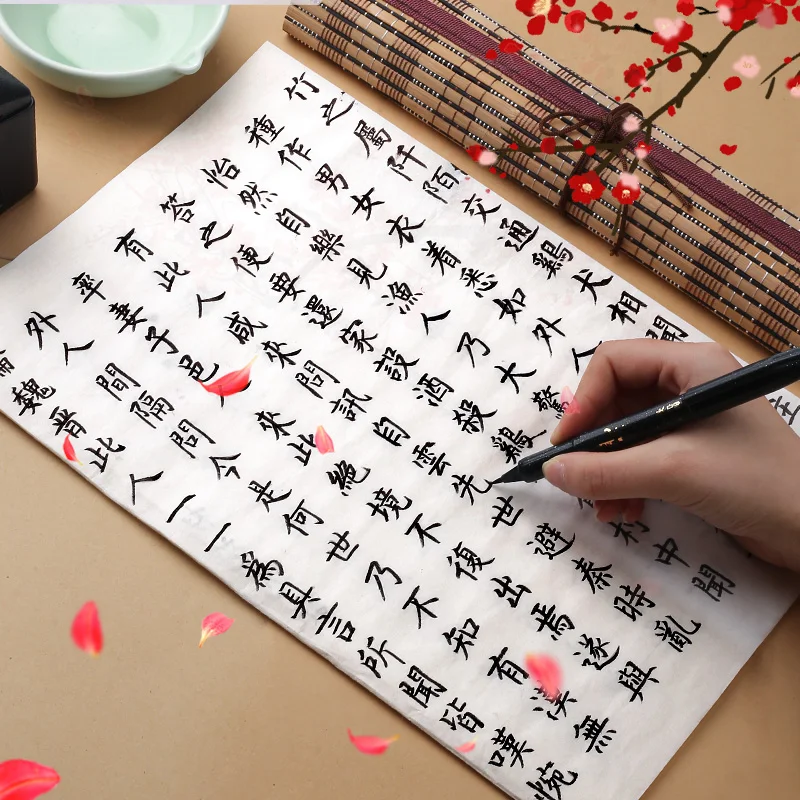 竹之屬阡陌交通鷄犬相聞
種作男女衣着悉如外人
怡然自樂見漁人乃大驚
答之便要還家設酒殺鷄村中聞
有此人咸來問訊自雲先世避秦時亂
率妻子邑來此絕境不復出焉遂與
外人間隔問今是何世乃不知有漢無
魏晋此人一一為具言所聞皆嘆惋